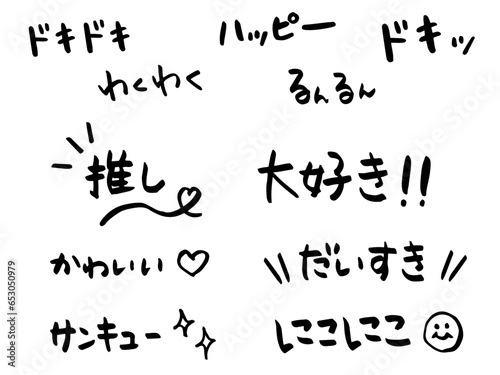 ドキドキ
ハッピー
ドキッ
わくわく
るんるん
推し
大好き!!
かわいい♡
\\だいすき//
サンキュー
にこにこ
Adobe Stock | #653050979